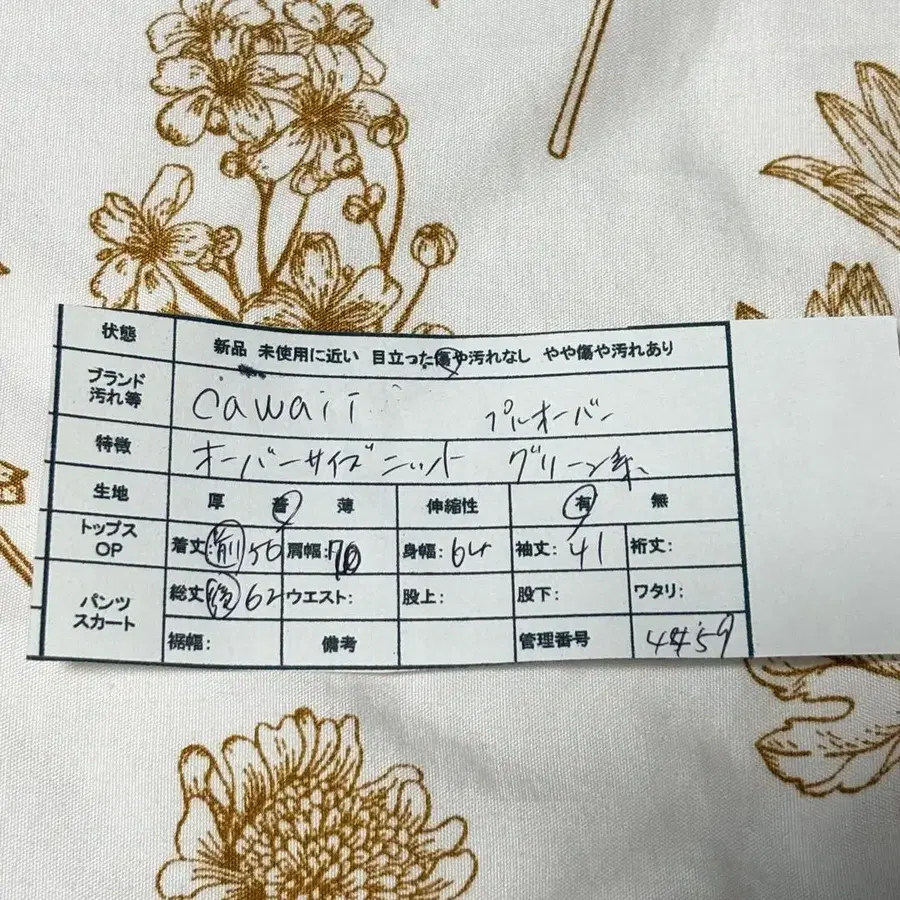 状態 新品 未使用に近い 目立った傷や汚れなし やや傷や汚れあり
ブランド 汚れ等 cawaii プルオーバー
特徴 オーバーサイズニット グリーン系
生地 厚 普 薄 伸縮性 有 無
トップス OP 着丈:前56 肩幅:70 身幅:64 袖丈:41 裄丈:
パンツ スカート 総丈後62 ウエスト: 股上: 股下: ワタリ:
裾幅: 備考 管理番号